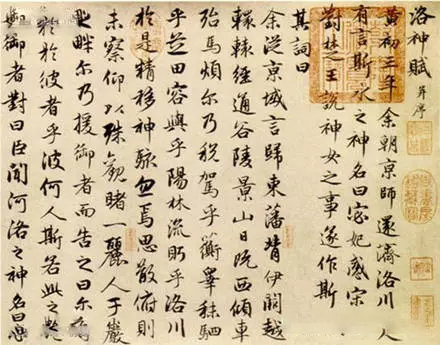 洛神賦 并序
黃初三年余朝京師還濟洛川人
有言斯水之神名曰宓妃感宋
對楚王說神女之事遂作斯
其詞曰
余從京域言歸東藩背伊闕越
轘轅經通谷陵景山日既西傾車
殆馬煩爾乃稅駕乎蘅皋秣駟
乎芝田容與乎陽林流眄乎洛川
於是精移神駭忽焉思散俯則
未察仰以殊觀睹一麗人于巖
之畔爾乃援御者而告之曰爾有
於彼者乎彼何人斯若此之艷
御者對曰臣聞河洛之神名曰宓